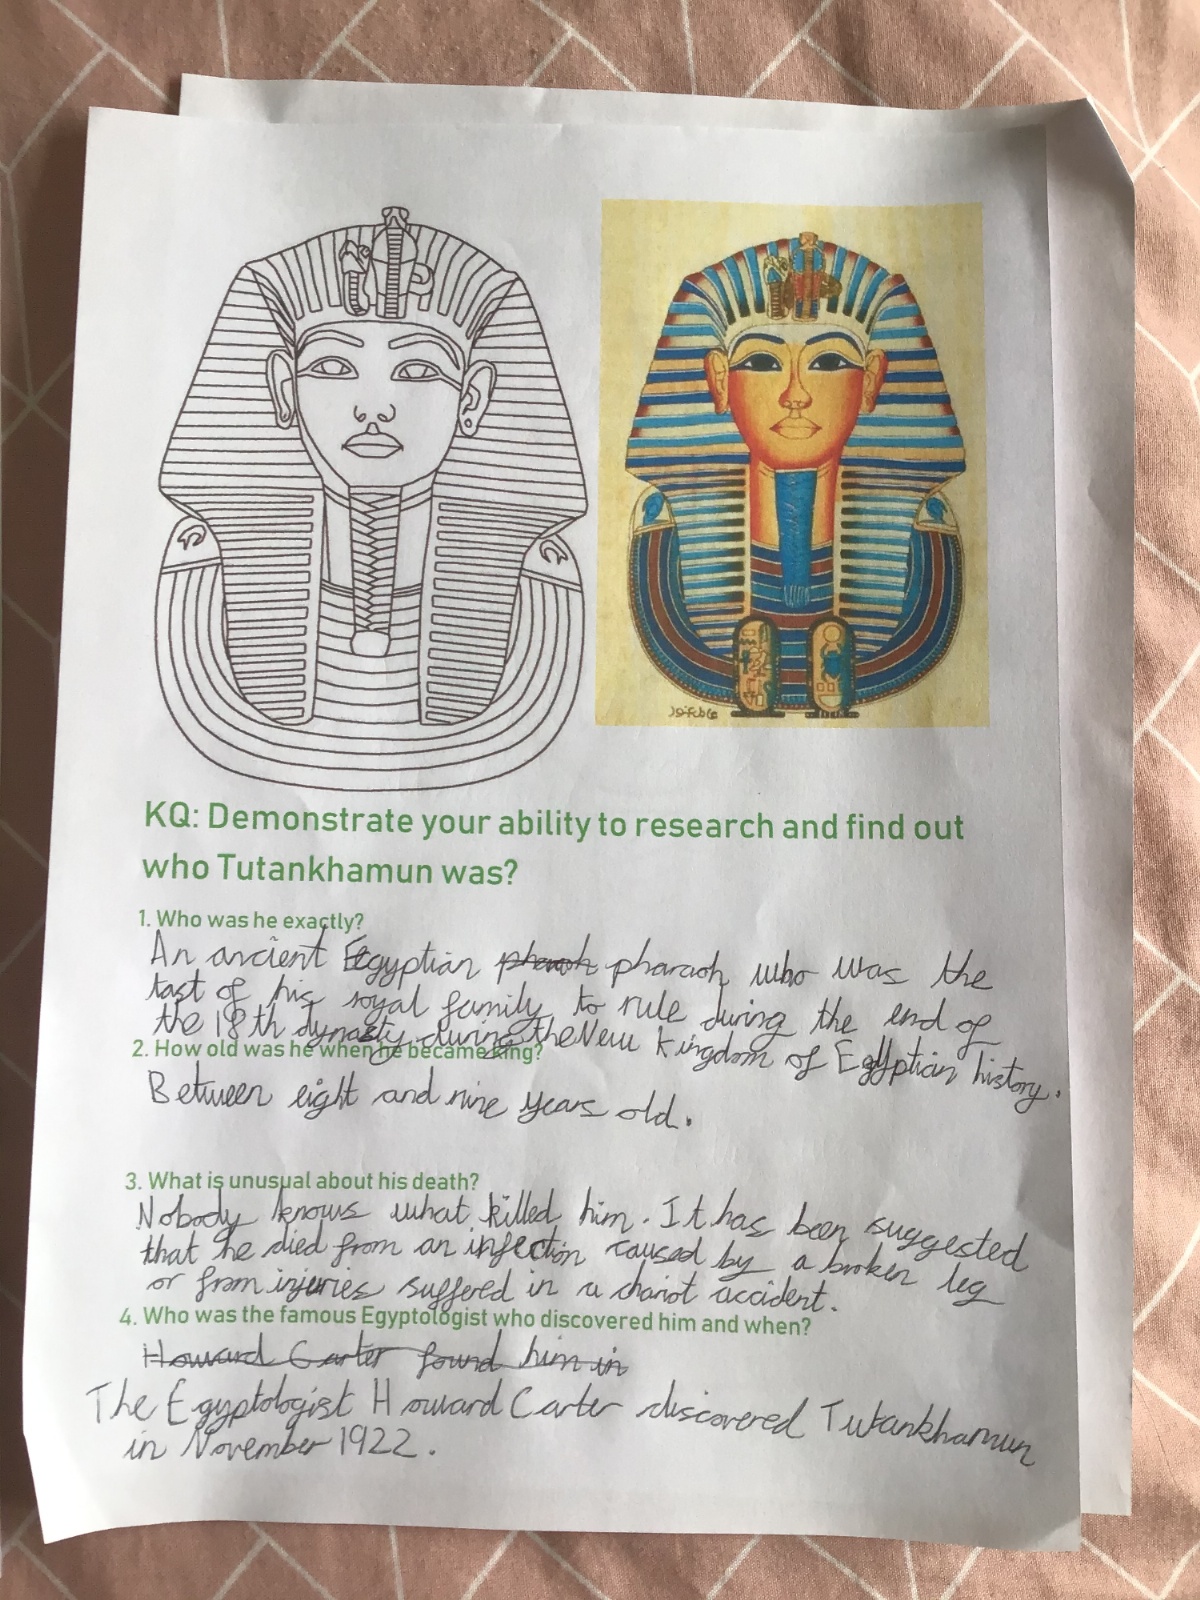 KQ: Demonstrate your ability to research and find out
who Tutankhamun was?
1. Who was he exactly?
An ancient Egyptian pharoh pharaoh who was the
last of his royal family to rule during the end of
the 18th dynasty during the New Kingdom of Egyptian history.
2. How old was he when he became king?
Between eight and nine years old.
3. What is unusual about his death?
Nobody knows what killed him. It has been suggested
that he died from an infection caused by a broken leg
or from injuries suffered in a chariot accident.
4. Who was the famous Egyptologist who discovered him and when?
Howard Carter found him in
The Egyptologist Howard Carter discovered Tutankhamun
in November 1922.